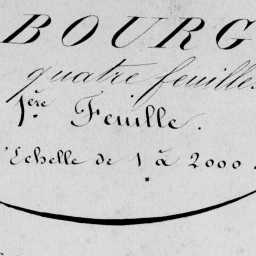 BOURG
quatre feuilles.
1ère Feuille.
Echelle de 1 à 2000.